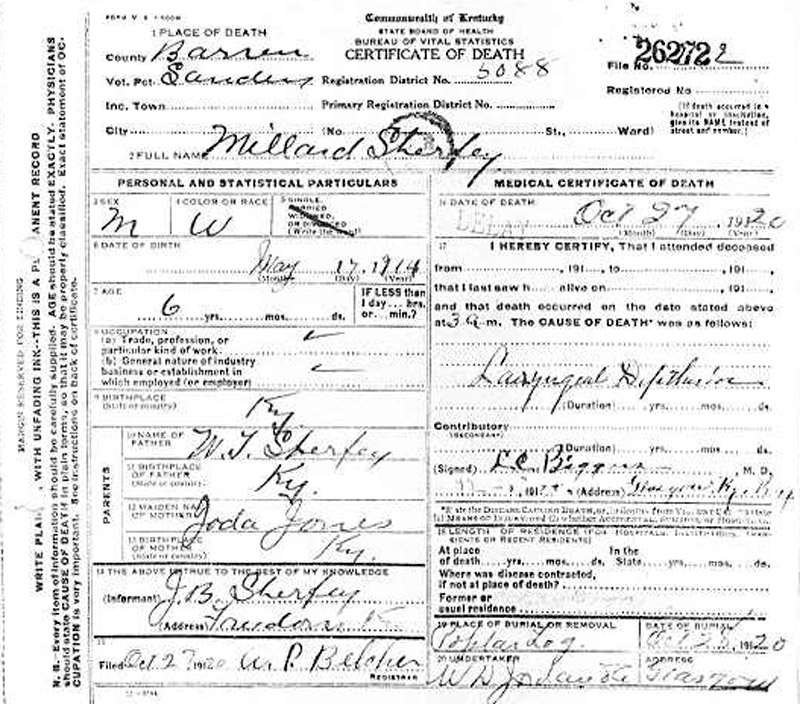 FORM V. S. 1
Commonwealth of Kentucky
STATE BOARD OF HEALTH
BUREAU OF VITAL STATISTICS
CERTIFICATE OF DEATH
1 PLACE OF DEATH
County Barren
Vot. Pct. Sanders
Inc. Town
City
Registration District No. 5088
Primary Registration District No.
(No. St., Ward)
File No. 26272
Registered No.
(If death occurred in a hospital or institution, give its NAME instead of street and number.)
2 FULL NAME Millard Sherfey
PERSONAL AND STATISTICAL PARTICULARS
3 SEX
M
4 COLOR OR RACE
W
5 SINGLE, MARRIED WIDOWED, OR DIVORCED (Write the word)
6 DATE OF BIRTH
May 17, 1914
(Month) (Day) (Year)
7 AGE
6 yrs. mos. ds.
IF LESS than 1 day... hrs. or... min.?
8 OCCUPATION
(a) Trade, profession, or particular kind of work.
(b) General nature of industry business or establishment in which employed (or employer)
9 BIRTHPLACE
(State or country)
Ky.
PARENTS
10 NAME OF FATHER
W. T. Sherfey
11 BIRTHPLACE OF FATHER
(State or country)
Ky.
12 MAIDEN NAME OF MOTHER
Joda Jones
13 BIRTHPLACE OF MOTHER
(State or country)
Ky.
14 THE ABOVE IS TRUE TO THE BEST OF MY KNOWLEDGE
(Informant) J. B. Sherfey
(Address) Freedom
15
Filed Oct 27 1920 W. P. Belcher
REGISTRAR
MEDICAL CERTIFICATE OF DEATH
16 DATE OF DEATH
DELAY
Oct 27 1920
(Month) (Day) (Year)
17 I HEREBY CERTIFY, That I attended deceased
from , 191 , to , 191 ,
that I last saw h alive on , 191 ,
and that death occurred on the date stated above
at 3 a m. The CAUSE OF DEATH* was as follows:
Laryngeal
(Duration) yrs. mos. ds.
Contributory
(SECONDARY)
(Duration) yrs. mos. ds.
(Signed) M. D.
(Address) Glasgow Ky
18 LENGTH OF RESIDENCE (FOR HOSPITALS, INSTITUTIONS, TRANSIENTS OR RECENT RESIDENTS)
At place of death yrs. mos. ds. In the State yrs. mos. ds.
Where was disease contracted, if not at place of death?
Former or usual residence
19 PLACE OF BURIAL OR REMOVAL
Poplar Log
DATE OF BURIAL
Oct 28, 1920
20 UNDERTAKER
ADDRESS
Glasgow
MARGIN RESERVED FOR BINDING
WITH UNFADING INK--THIS IS A
ANENT RECORD
N. B. Every item of information should be carefully supplied. AGE should be stated EXACTLY. PHYSICIANS
should state CAUSE OF DEATH in plain terms, so that it may be properly classified. Exact statement of OC-
CUPATION is very important. See instructions on back of certificate.